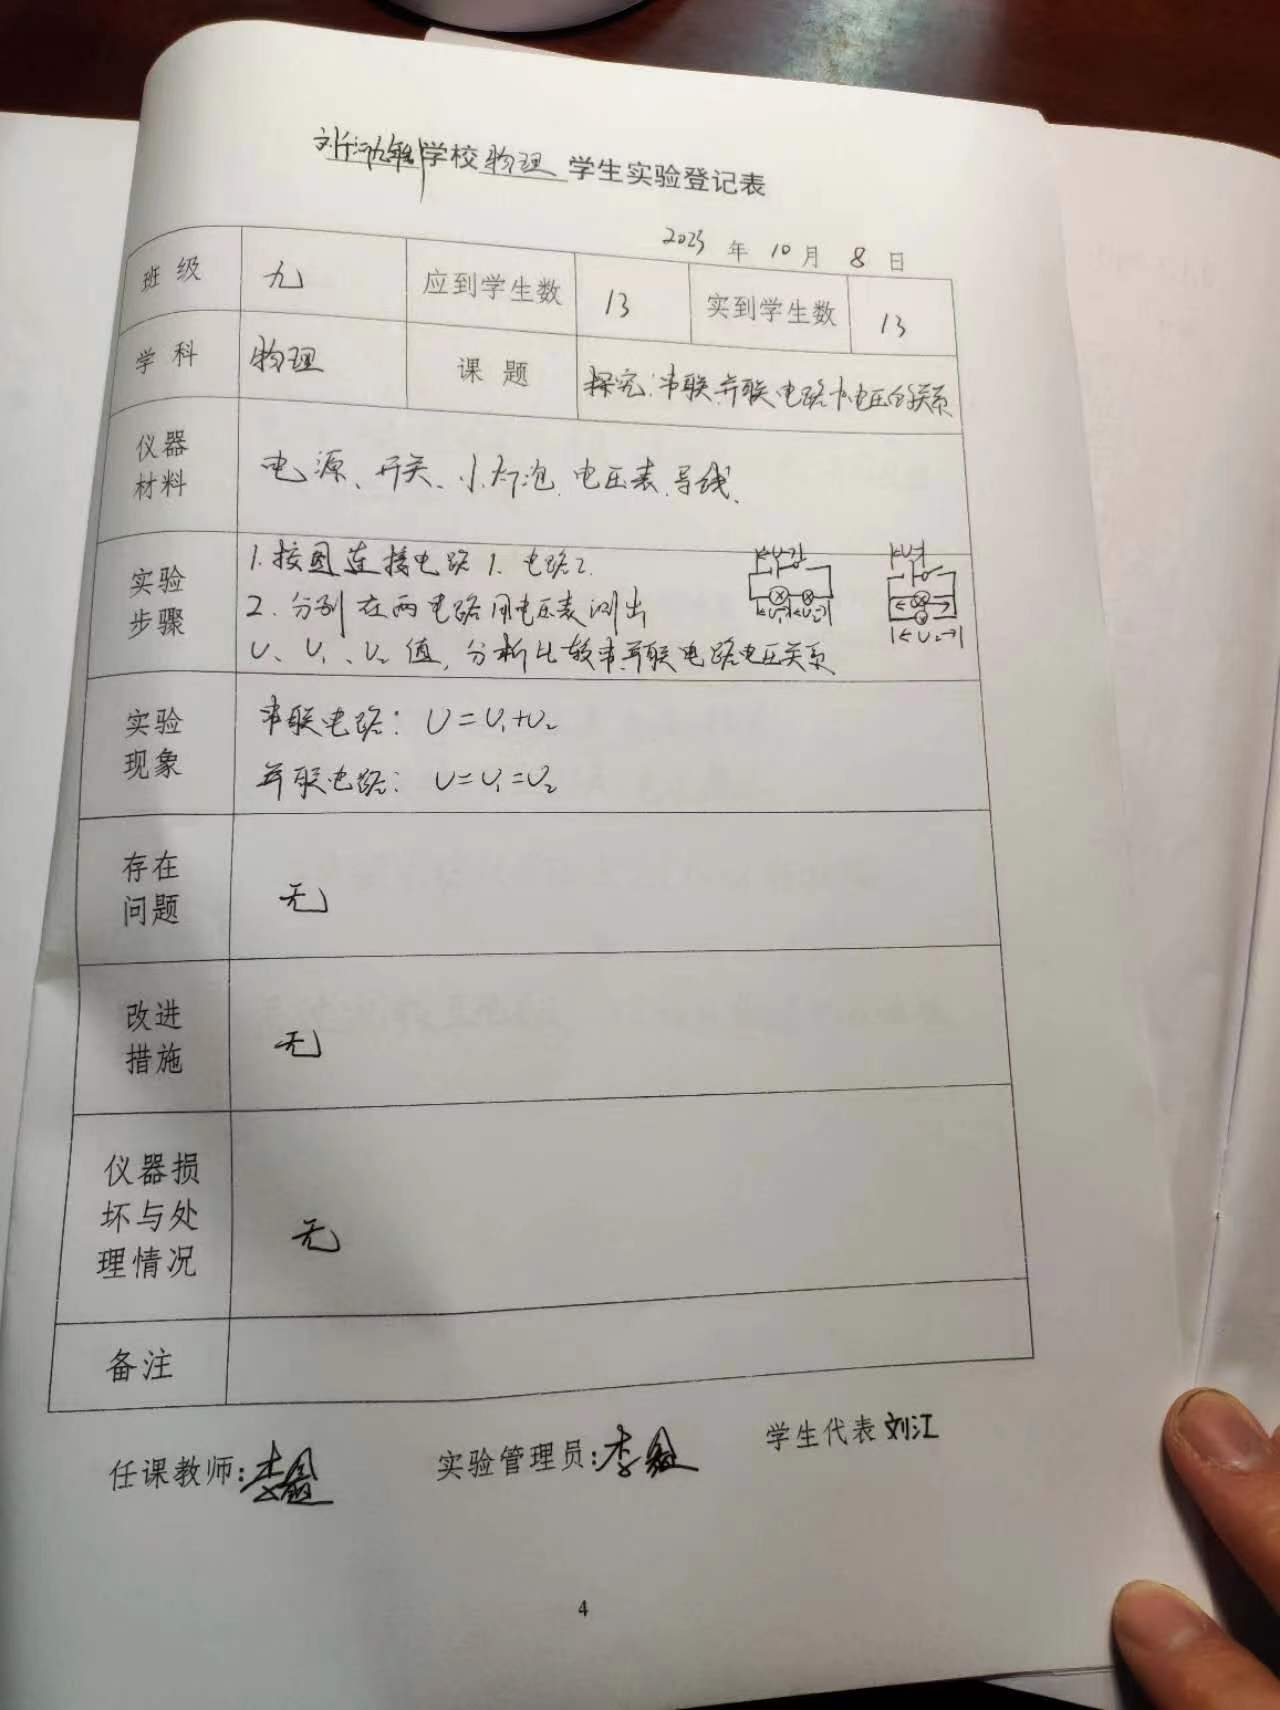 学校 物理 学生实验登记表
2023 年 10 月 8 日
班级 九 应到学生数 13 实到学生数 13
学科 物理 课题 探究串联、并联电路中电压的关系
仪器材料 电源、开关、小灯泡、电压表、导线、
实验步骤
1.按图连接电路1、电路2.
2.分别在两电路用电压表测出
U、U₁、U₂值,分析比较串、并联电路电压关系
实验现象
串联电路:U=U₁+U₂
并联电路:U=U₁=U₂
存在问题 无
改进措施 无
仪器损坏与处理情况 无
备注
任课教师: 实验管理员: 学生代表 刘江
4